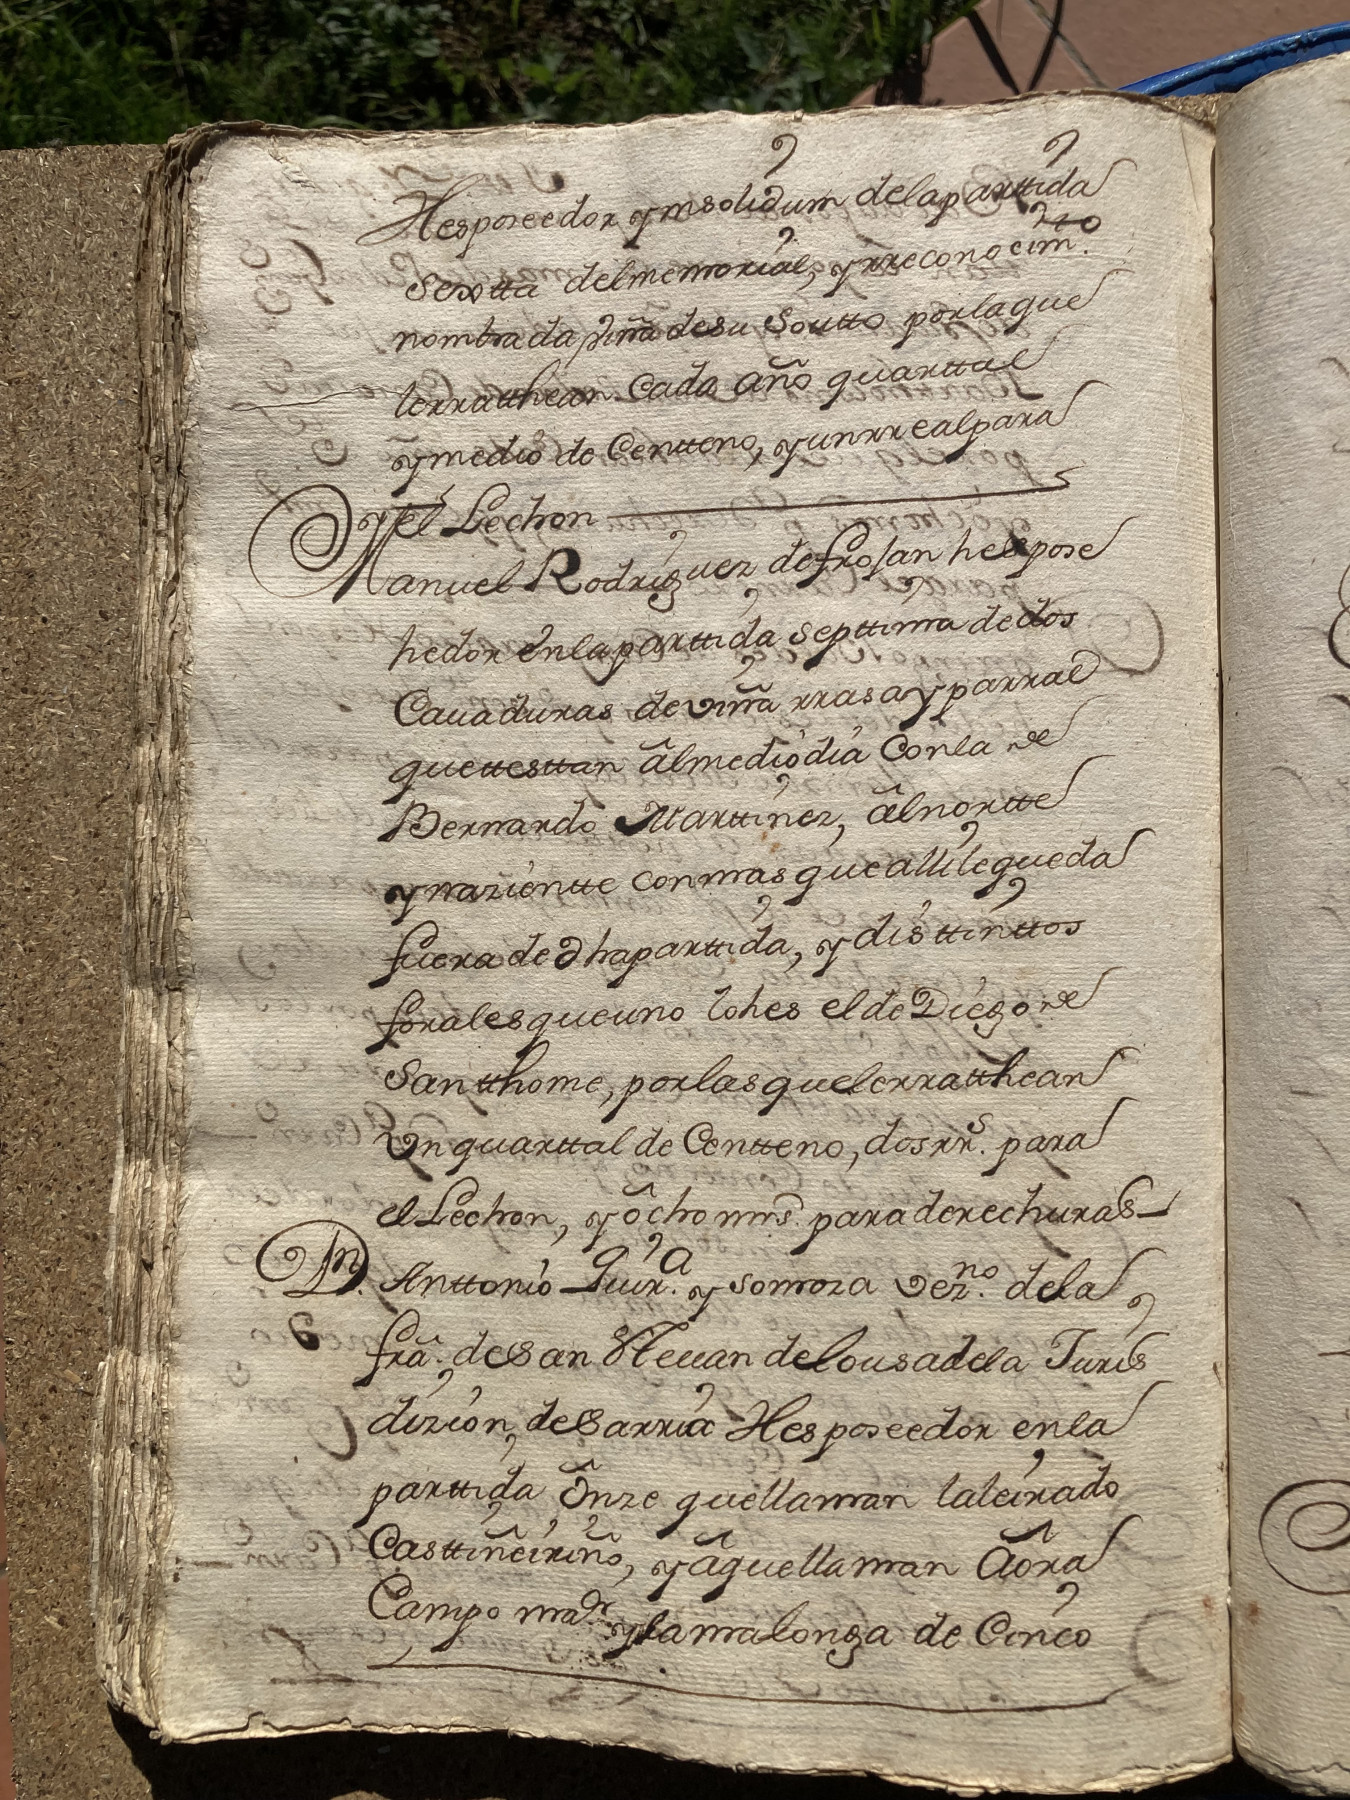 Hes poseedor y ynsolidum dela parttida
Sextta del memorial, y rreconocim.to
nombrada viña de su Soutto por la que
lerratthean Cada año quarttal
y medio de Centteno, y un rreal para
el Lechon
Manuel Rodriguez de frojan hes pose
hedor en la parttida septtima de dos
Cauaduras de viña rrasa y parral
que ttesttan âl mediodia Con la de
Bernardo Marttinez, âl nortte
y nazientte con mas que alli le queda
fuera de dha parttida, y disttinttos
forales que uno lo hes el de Diego de
Santthome, por las que lerratthean
Un quarttal de Centteno, dos rr.s para
el Lechon, y ôcho mrs. para derechuras
Dn. Anttonio Quir.ga y somoza vez.no de la
frâ. de San Steuan de lousadela Juris
dizion, de Sarria Hes poseedor en la
parttida Ônze que llaman la leirado
Casttiñeiriño, y â que llaman Âora
Campo ma.or y lama longa de Cinco